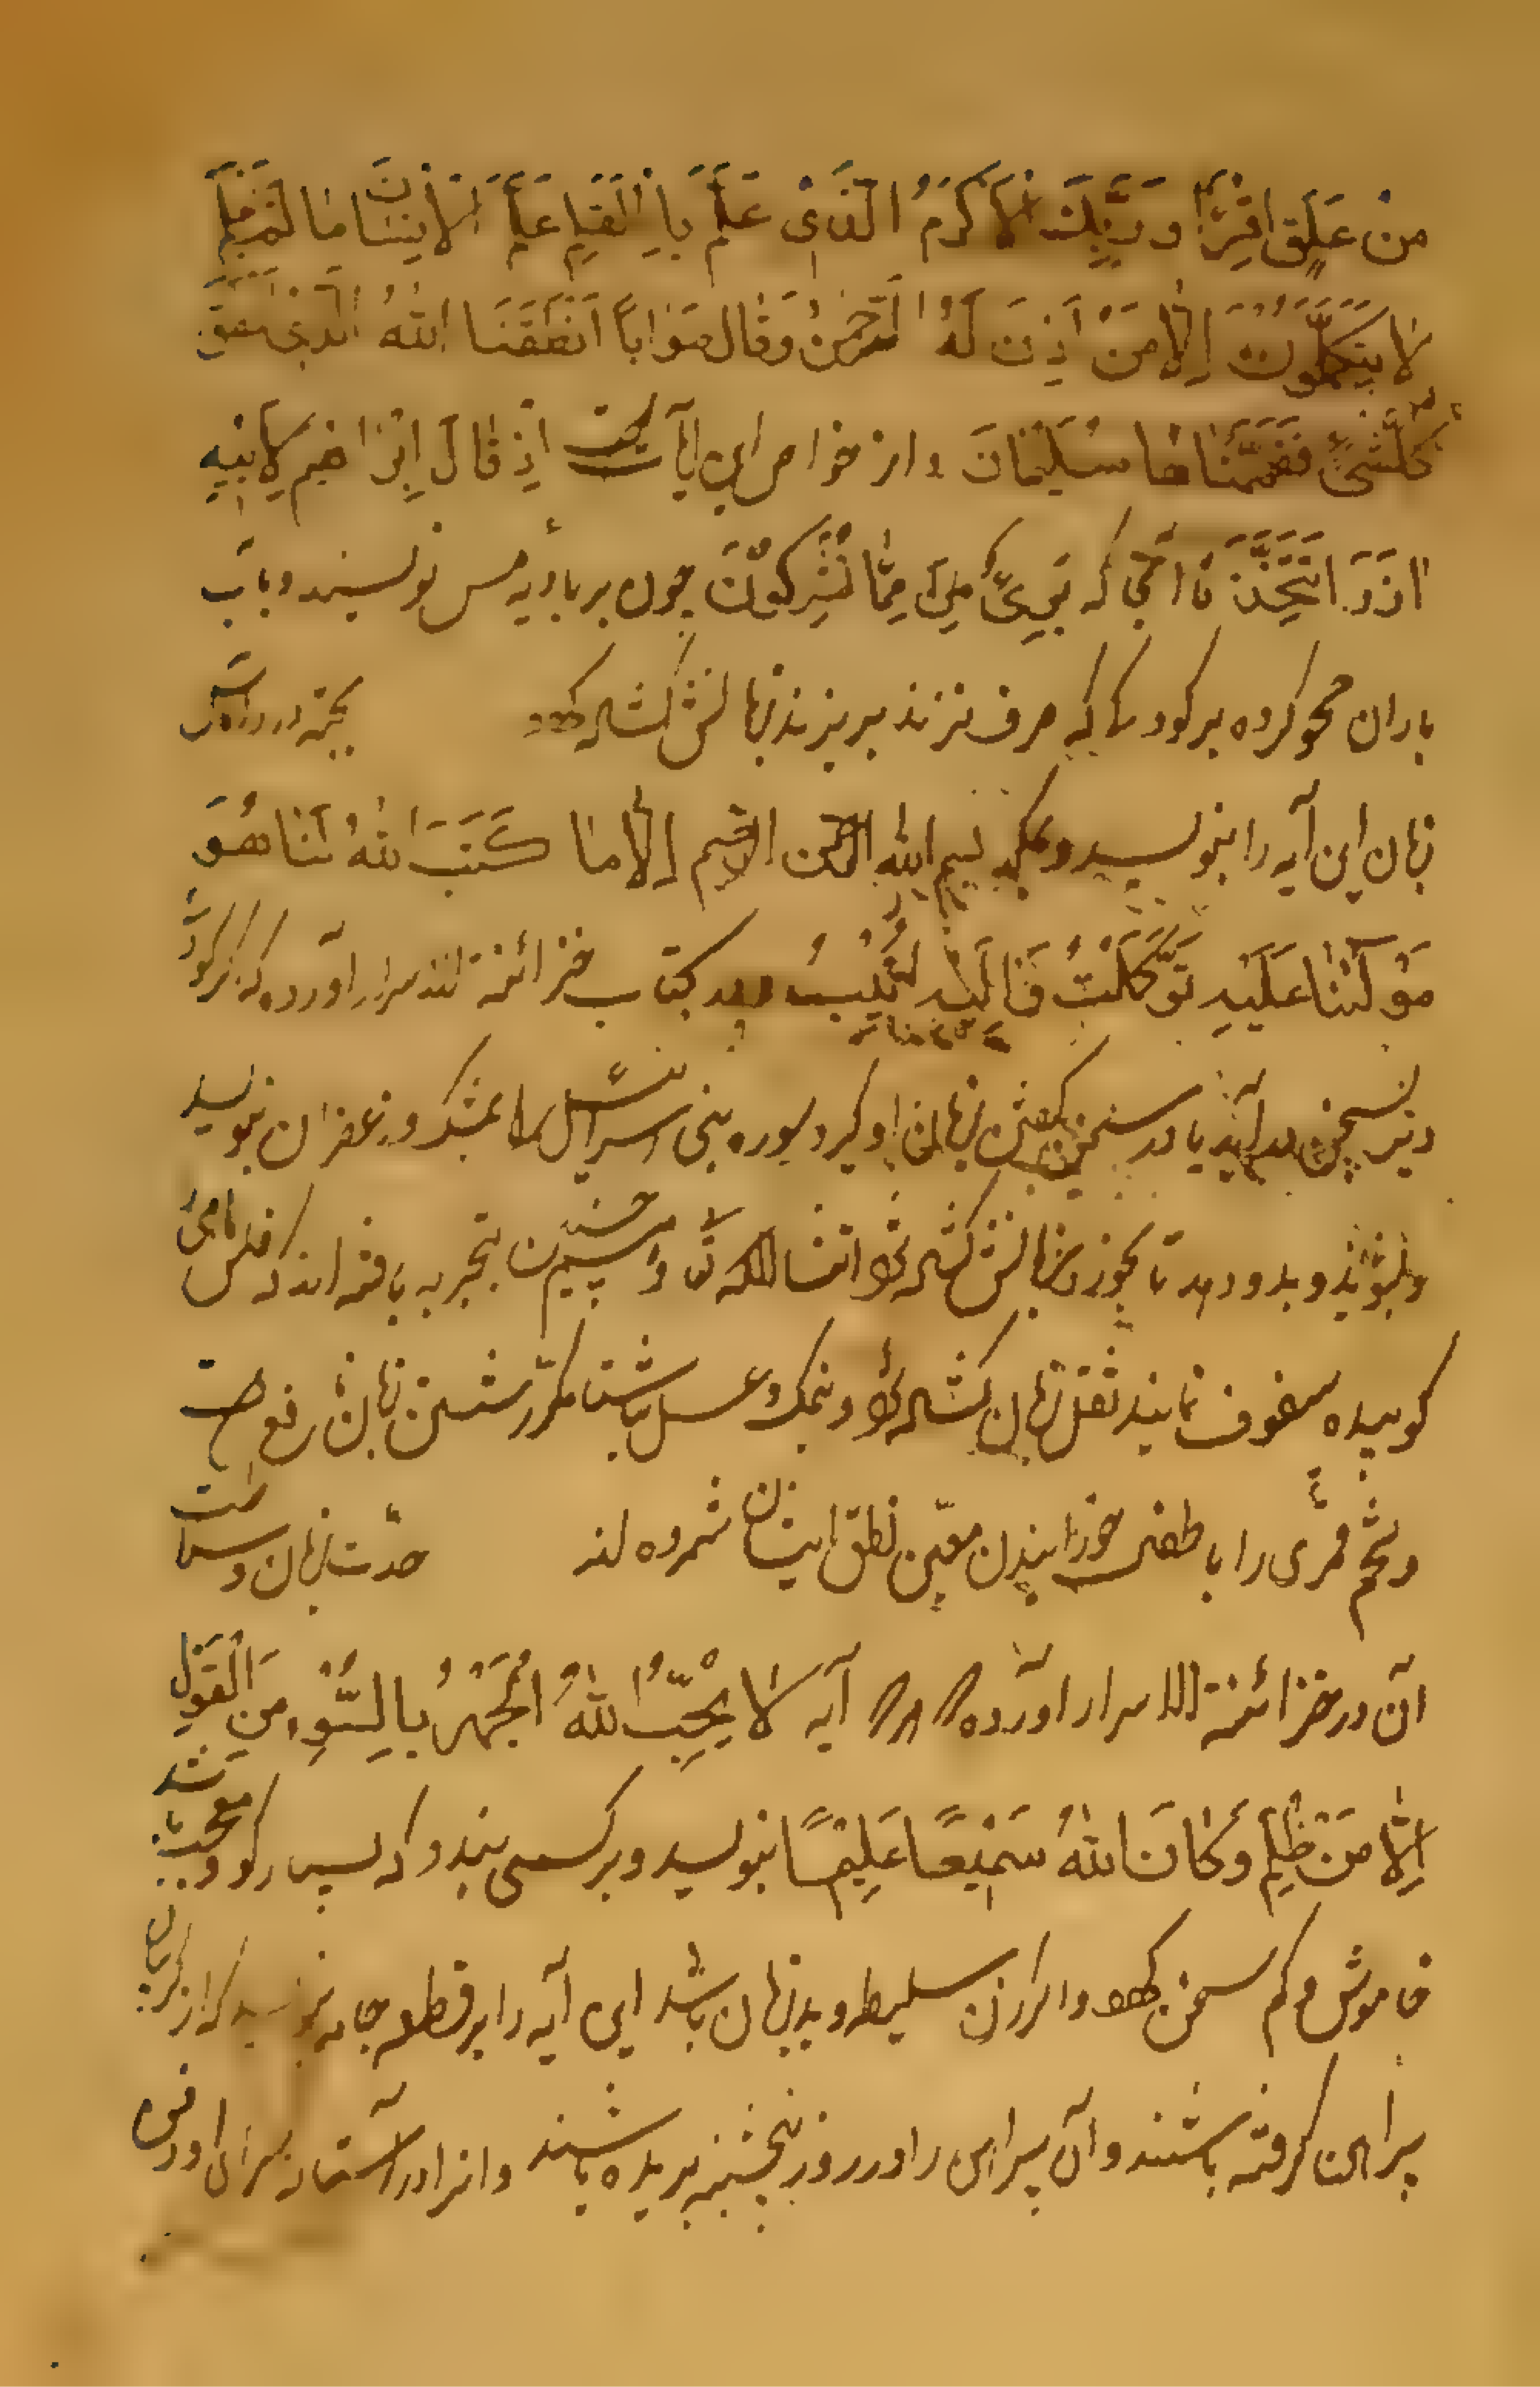 مِنْ عَلَقٍ اقْرَأْ وَرَبُّكَ الْأَكْرَمُ الَّذِي عَلَّمَ بِالْقَلَمِ عَلَّمَ الْإِنْسَانَ مَا لَمْ يَعْلَمْ
لَا يَتَكَلَّمُونَ إِلَّا مَنْ أَذِنَ لَهُ الرَّحْمٰنُ وَقَالَ صَوَابًا أَنْطَقَنَا اللهُ الَّذِي أَنْطَقَ
كُلَّ شَيْءٍ فَفَهَّمْنَاهَا سُلَيْمَانَ و از خواص این آیات است إِذْ قَالَ إِبْرَاهِيمُ لِأَبِيهِ
آزَرَ أَتَتَّخِذُ تا آنجا که بَرِيءٌ مِمَّا تُشْرِكُونَ چون بر بادیه مس نویسند و باب
باران محو کرده بر کودکی که حرف نزند بریزند زبانش کشاده کردد بجهة درد
زبان این آیه را بنویسد و بسم الله الرحمن الرحیم إِلَّا مَا كَتَبَ اللهُ لَنَا هُوَ
مَوْلَانَا عَلَيْهِ تَوَكَّلْتُ وَإِلَيْهِ أُنِيبُ و در کتاب خزائنة الاسرار آورده که هر کودک
دیر بسخن در آید یا در سخن کفتن زبانش او کیرد سوره بنی اسرائیل را بمشک و زعفران بنویسد
و بشویند و بدو دهد تا بخورد زبانش کشاده شود انشاالله تعالی و همچنین بتجربه یافته اند که
کوبیده سفوف نمایند ثقل زبان کشاده شود و نمک و عسل باشتا مکرر شستن زبان رفع
و تخم قمری را با طفل خورانیدن معین نطق ایشان شمرده اند حدت زبان و
آن در خزائنة الاسرار آورده آیه لَا يُحِبُّ اللهُ الْجَهْرَ بِالسُّوءِ مِنَ الْقَوْلِ
إِلَّا مَنْ ظُلِمَ وَكَانَ اللهُ سَمِيعًا عَلِيمًا بنویسد و بر کسی بندد که بسیار کو و باشد
خاموش و کم سخن کردد و اکر زن سلیطه و بد زبان باشد این آیه را بر قطعه جامه بنویسد که از کریبان
پیراهن کرفته باشند و آن پیراهن را در روز پنجشنبه بریده باشند و انرا در آستانه سرای او دفن